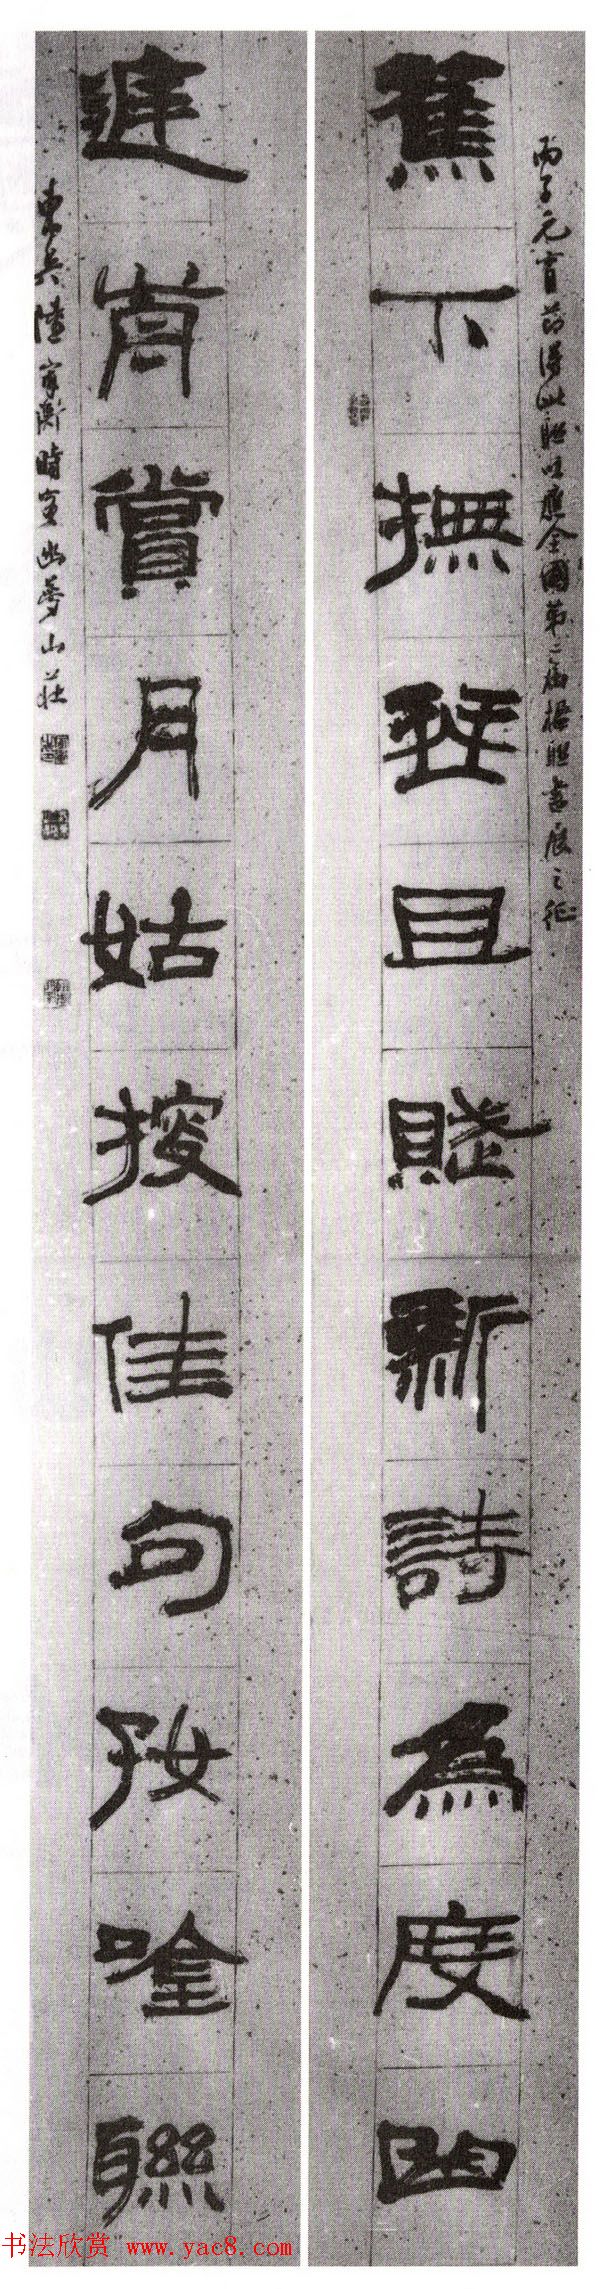 丙子元宵節得此聯以應全國第二屆楹聯書展之徵
蕉下撫琴且賦新詩為度曲
賞月姑搜佳句好唫聯
東吳陸家衡時客幽夢山莊
书法欣赏 www.yac8.com